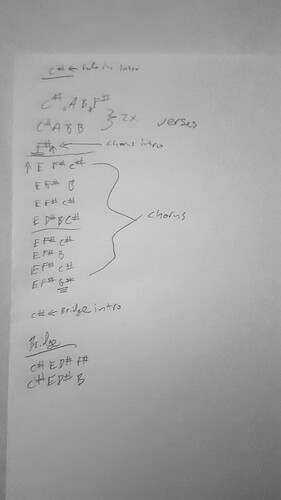 C# ← Intro
C#, A B, F#
C# A B B } 2x verses
F# ← chorus intro
↑ E F# C#
E F# B
E F# C#
E D# B C#
chorus
E F# C#
E F# B
E F# C#
E F# G#
C# ← Bridge intro
Bridge
C# E D# F#
C# E D# B